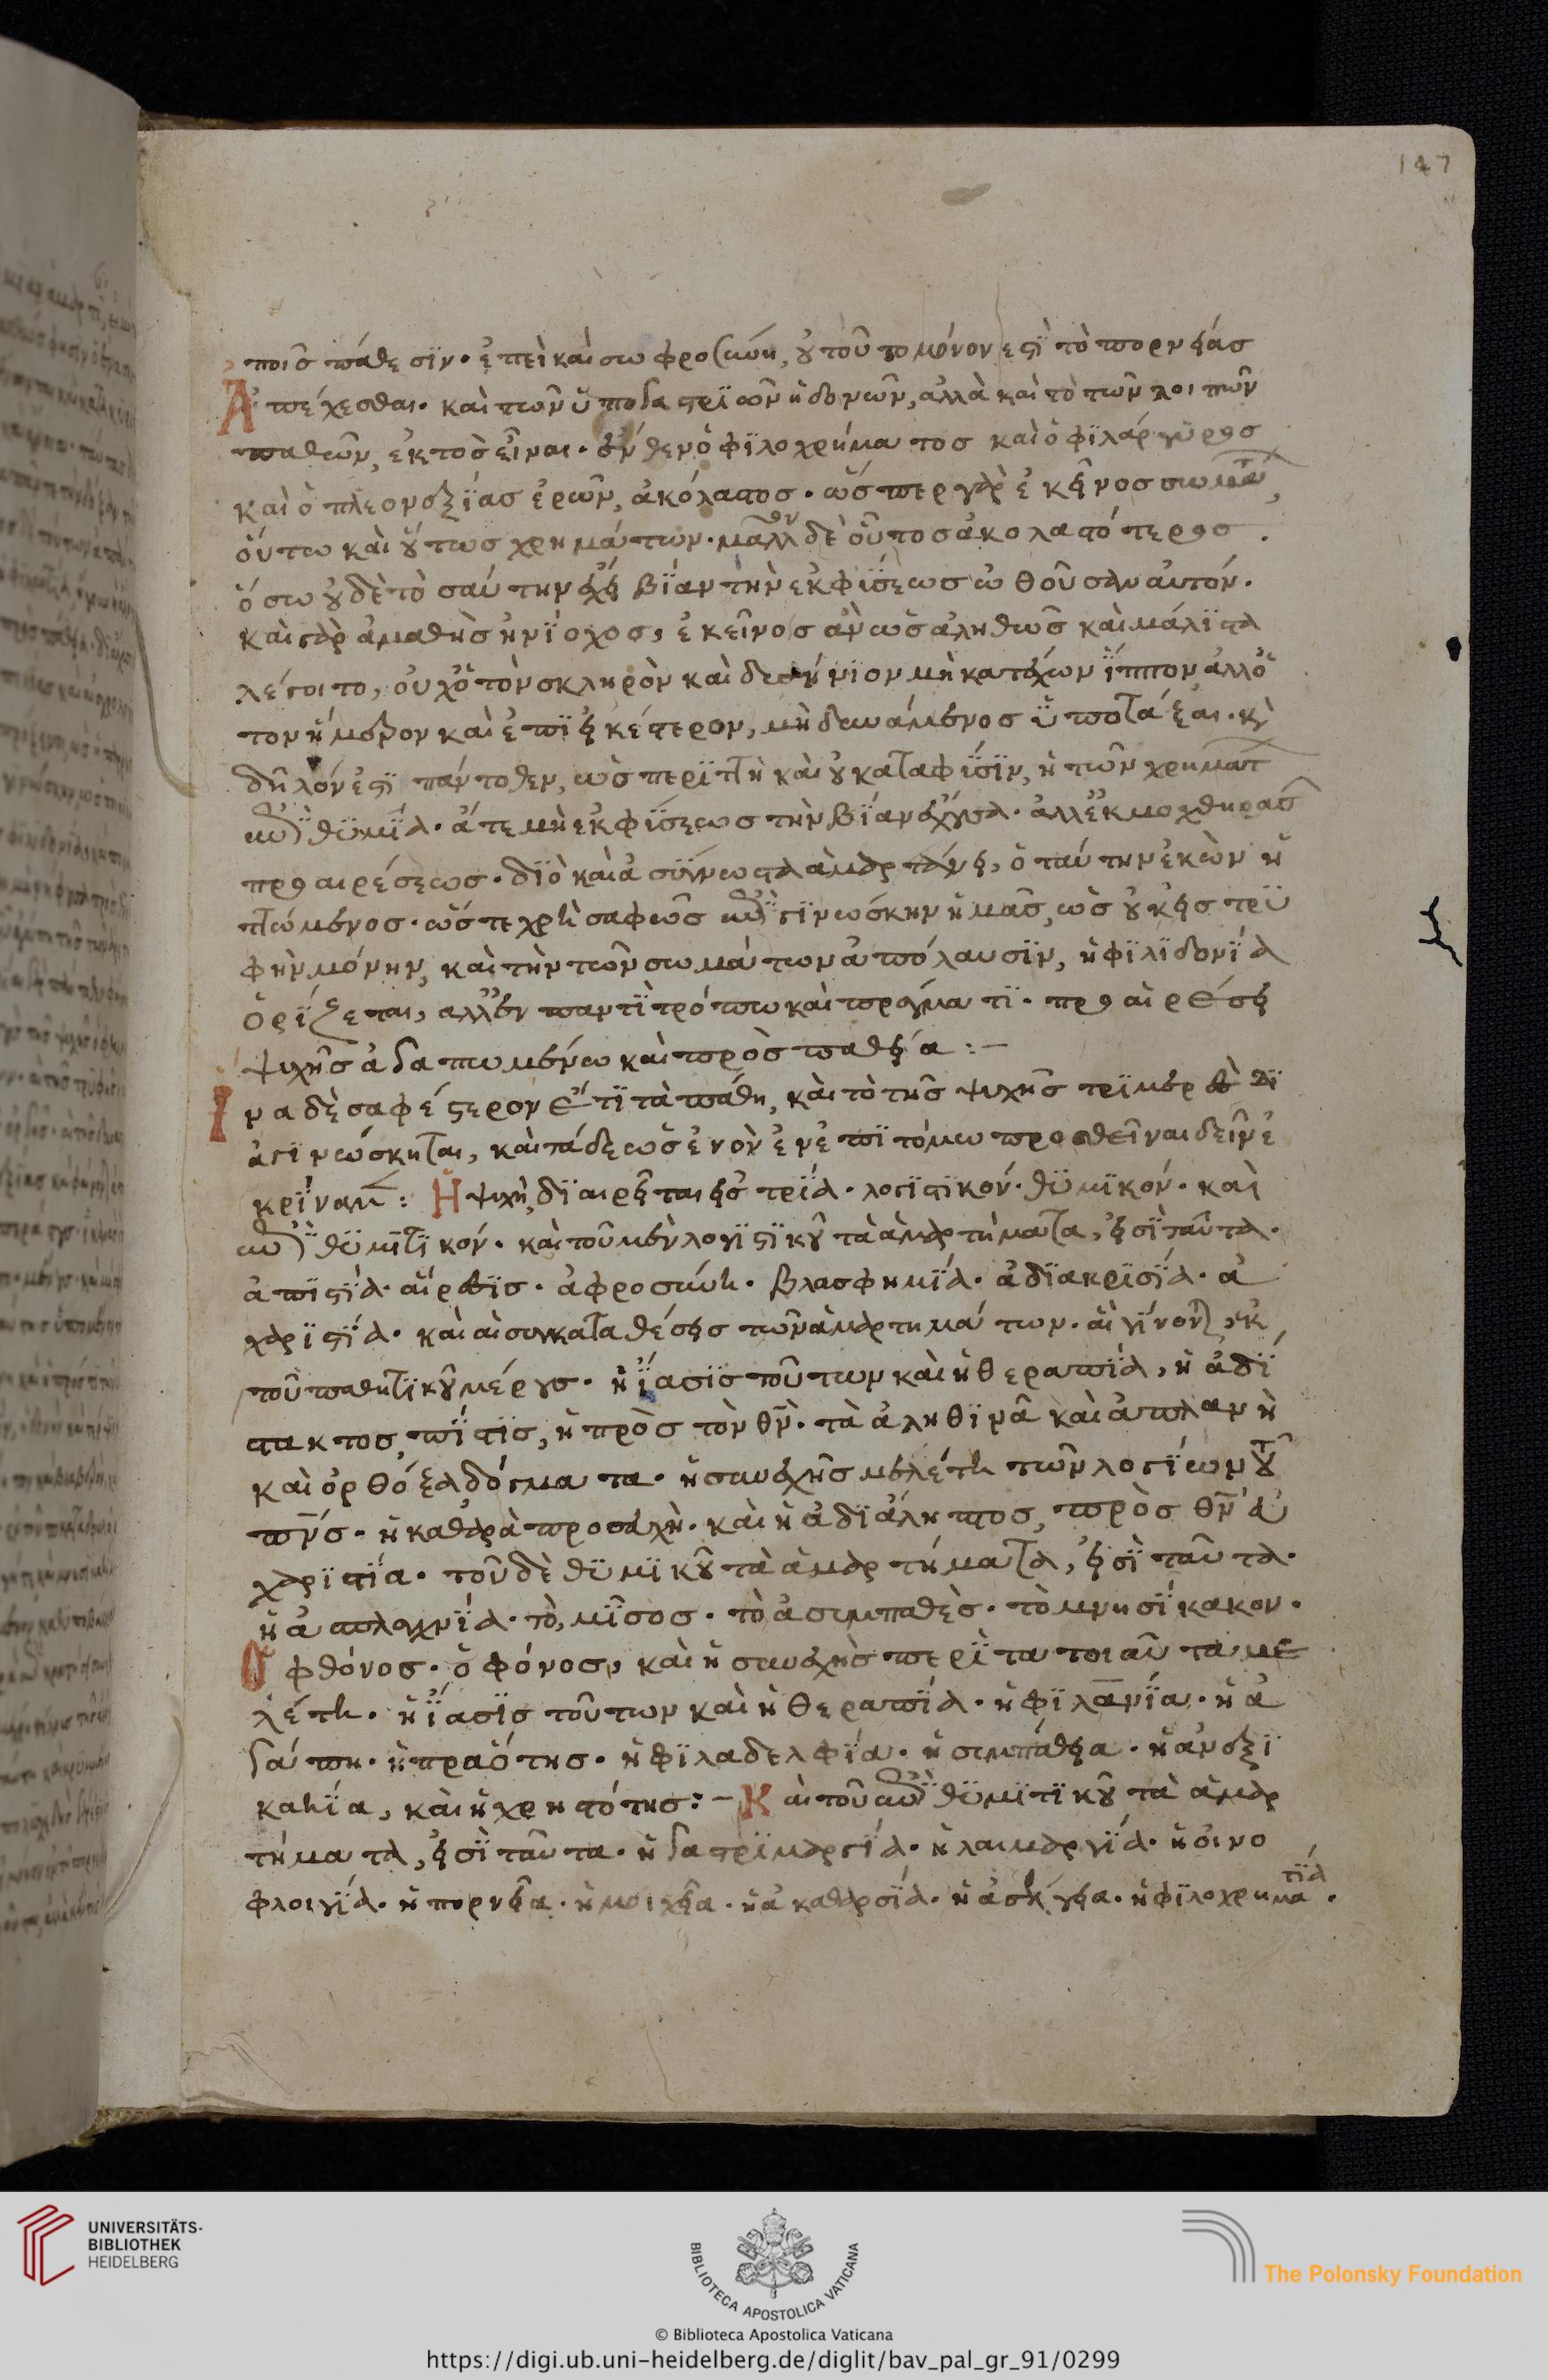 147
ποις πάθεσϊν· ἐπεὶ καὶ σωφροσύνη, οὐ τοῦτο μόνον ἐστϊ τὸ πορνείας
Ἀπέχεσθαι· καὶ τῶν ὑπογαστρϊων ἡδονῶν, ἀλλὰ καὶ τὸ τῶν λοιπῶν
παθῶν, ἐκτὸς εἶναι· ἔνθεν ὁ φϊλοχρήματος καὶ ὁ φϊλάργϋρος
καὶ ὁ πλεονεξϊας ἐρῶν, ἀκόλαστος· ὥσπερ γὰρ ἐκεῖνος σωμάτ
οὕτω καὶ οὗτως χρημάτων· μᾶλλον δὲ οὗτος ἀκολαστότερος
ὅσω οὐδὲ τοσαύτην ἔχει βϊαν τὴν ἐκ φϋσεως ὠθοῦσαν αὐτόν·
καὶ γὰρ ἀμαθὴς ἡνϊοχος, ἐκεῖνος ἂν ὡς ἀληθῶς καὶ μάλϊστα
λέγοιτο, οὐχ ὁ τὸν σκληρὸν καὶ δυσήνϊον μὴ κατέχων ἵππον ἀλλ ὁ
τον ἥμερον καὶ ἐπϊεικέστερον, μὴ δυνάμενος ὑποτάξαι· κ
δῆλόν ἐστϊ πάντοθεν, ὡς περϊττὴ καὶ οὐ κατὰ φϋσϊν, ἡ τῶν χρημάτ
ἐπϊθϋμϊα· ἅτε μὴ ἐκ φϋσεως τὴν βϊαν ἔχουσα· ἀλλ ἐκ μοχθηρᾶς
προαιρέσεως· δϊὸ καὶ ἀσϋγνωστα ἁμαρτάνει, ὁ ταύτην ἑκὼν ἡ
ττώμενος· ὥστε χρὴ σαφῶς ἐπϊγϊνώσκειν ἡμᾶς, ὡς οὐκ εἰς τρϋ
φὴν μόνην, καὶ τὴν τῶν σωμάτων ἀπόλαυσϊν, ἡ φϊληδονϊα
Ὁρϊζεται, ἀλλ ἐν παντὶ τρόπω καὶ πράγματϊ· προαιρέσει
ψυχῆς ἀγαπωμένω καὶ προσπαθεία :–
Ἵνα δὲ σαφέστερον ἔτϊ τὰ πάθη, κατὰ τὸ τῆς ψυχῆς τρϊμερὲς δϊ
αγϊνώσκηται, καὶ τάδε ὡς ἐν ἐπϊτόμω προσθεῖναι δεῖν ἐ
κρϊναμεν: Ἡ ψυχὴ, δϊαιρεῖται εἰς τρϊα· λογϊστϊκόν· θϋμϊκόν· καὶ
ἐπϊθϋμητϊκόν· καὶ τοῦ μὲν λογϊστϊκοῦ τὰ ἁμαρτήματα, εἰσϊ ταῦτα·
ἀπϊστϊα· αἵρεσϊς· ἀφροσύνη· βλασφημϊα· ἀδϊακρϊσϊα· ἀ
χαρϊστϊα· καὶ αἱ συγκαταθέσεις τῶν ἁμαρτημάτων· αἳ γϊνονται ἐκ
τοῦ παθητϊκοῦ μέρους· ἡ ἴασϊς τοῦτων καὶ ἡ θεραπϊα, ἡ ἀδϊ
στακτος πϊστϊς, ἡ πρὸς τὸν θν· τὰ ἀληθϊνὰ καὶ ἀπλανὴ
καὶ ὀρθόξα δόγματα· ἡ συνεχὴς μελέτη τῶν λογϊων τοῦ
πνς· ἡ καθαρὰ προσευχὴ· καὶ ἡ ἀδϊάληπτος, πρὸς θν εὐ
χαρϊστϊα· τοῦ δὲ θϋμϊκοῦ τὰ ἁμαρτήματα, εἰσϊ ταῦτα·
ἡ ἀσπλαχνϊα· τὸ, μῖσος· τὸ ἀσυμπαθὲς· τὸ μνησϊκακον·
Ὁ φθόνος· ὁ φόνος, καὶ ἡ συνεχὴς περϊ τα τοιαῦτα με
λέτη· ἡ ἴασϊς τοῦτων καὶ ἡ θεραπϊα· ἡ φϊλανϊα· ἡ ἀ
γάπη· ἡ πραότης· ἡ φϊλαδελφϊα· ἡ συμπάθεια· ἡ ἀνεξϊ
κακϊα, καὶ ἡ χρηστότης:– Καὶ τοῦ ἐπϊθϋμϊτϊκοῦ τὰ ἁμαρ
τήματα, εἰσϊ ταῦτα· ἡ γαστρϊμαργϊα· ἡ λαιμαργϊα· ἡ οἰνο
φλοιγϊα· ἡ πορνεῖα· ἡ μοιχεῖα· ἡ ἀκαθαρσϊα· ἡ ἀσέλγεια· ἡ φϊλοχρηματϊα·
UNIVERSITÄTS-
BIBLIOTHEK
HEIDELBERG
BIBLIOTECA APOSTOLICA VATICANA
The Polonsky Foundation
© Biblioteca Apostolica Vaticana
https://digi.ub.uni-heidelberg.de/diglit/bav_pal_gr_91/0299